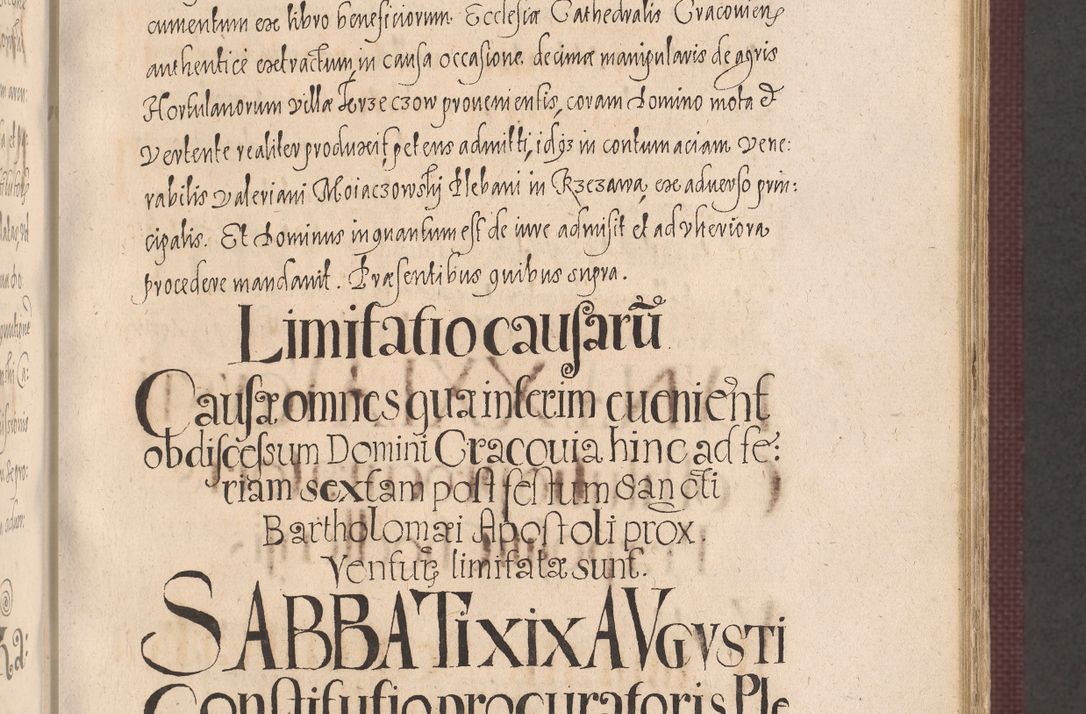 cumentum ex libro beneficiorum Ecclesiæ Cathedralis Cracovien
authenticè extractum, in causa occasione decimæ manipularis de agris
Hortulanorum villæ Krzeczow provenientis, coram Domino mota et
vertente realiter produxit, petens admitti, idq3 in contumaciam vene:
rabilis Valeriani Moiaczowskÿ Plebani in Rzezawa ex adverso prin:
cipalis. Et Dominus inquantum est de iure admisit et ad vlteriora
procedere mandavit. Præsentibus quibus supra.
Limitatio causarũ
Causæ omnes quæ interim evenient
ob discessum Domini Cracovia hinc ad fe:
riam sextam post festum Sancti
Bartholomæi Apostoli prox.
ventur limitatæ sunt.
SABBATi XiX AVGVSTi
Constitutio procuratoris Ple